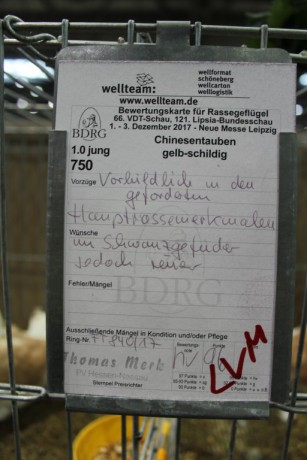 wellteam:
wellformat
schöneberg
wellcarton
welllogistik
www.wellteam.de
Bewertungskarte für Rassegeflügel
66. VDT-Schau, 121. Lipsia-Bundesschau
1. - 3. Dezember 2017 - Neue Messe Leipzig
BDRG
1.0 jung
750
Chinesentauben
gelb-schildig
Vorzüge Vorbildlich in den
geforderten
Hauptrassemerkmalen
Wünsche
im Schwanzgefieder
jedoch reiner
Fehler/Mängel
BDRG
Ausschließende Mängel in Kondition und/oder Pflege
Ring-Nr.
Thomas Merk
PV Hessen-Nassau
Stempel Preisrichter
Punkte
hv 96
LVM